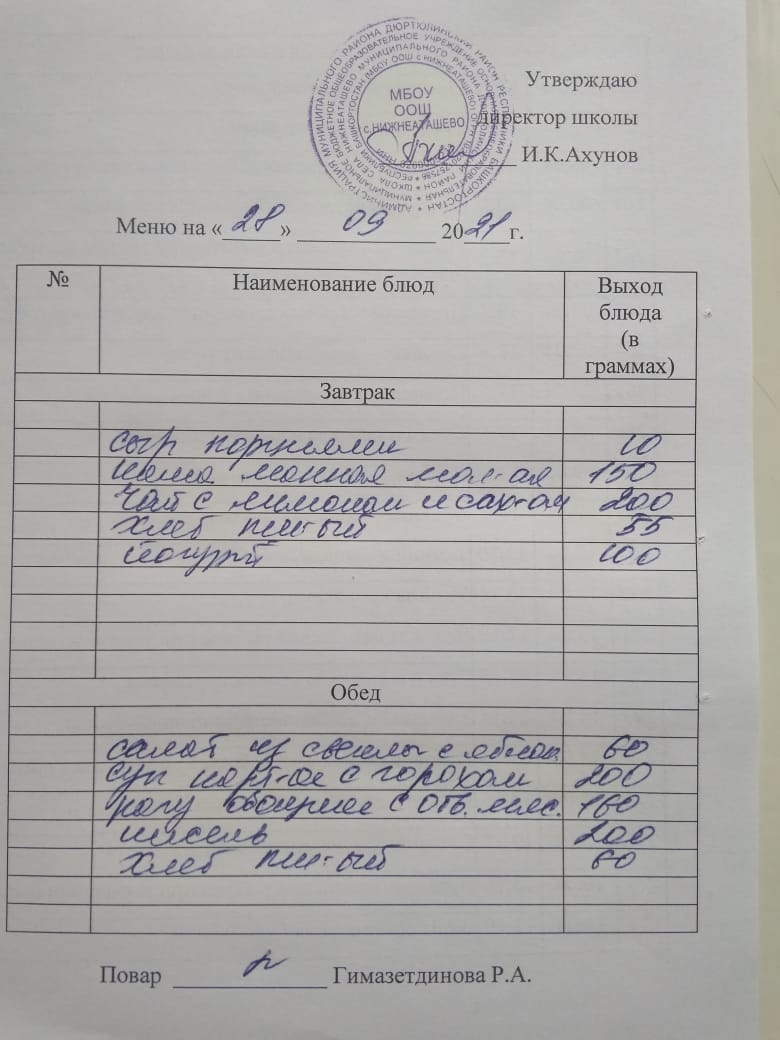 МБОУ
ООШ
с.НИЖНЕАТАШЕВО
Утверждаю
директор школы
И.К.Ахунов
Меню на «28» 09 2021г.
№ Наименование блюд Выход
блюда
(в
граммах)
Завтрак
сыр порциями 10
каша манная мол-ая 150
чай с лимоном и сах-ом 200
хлеб пш-ый 55
йогурт 100
Обед
салат из свеклы с яблок. 60
суп карт-ое с горохом 200
рагу овощное с отв. мяс. 160
кисель 200
хлеб пш-ый 60
Повар Гимазетдинова Р.А.